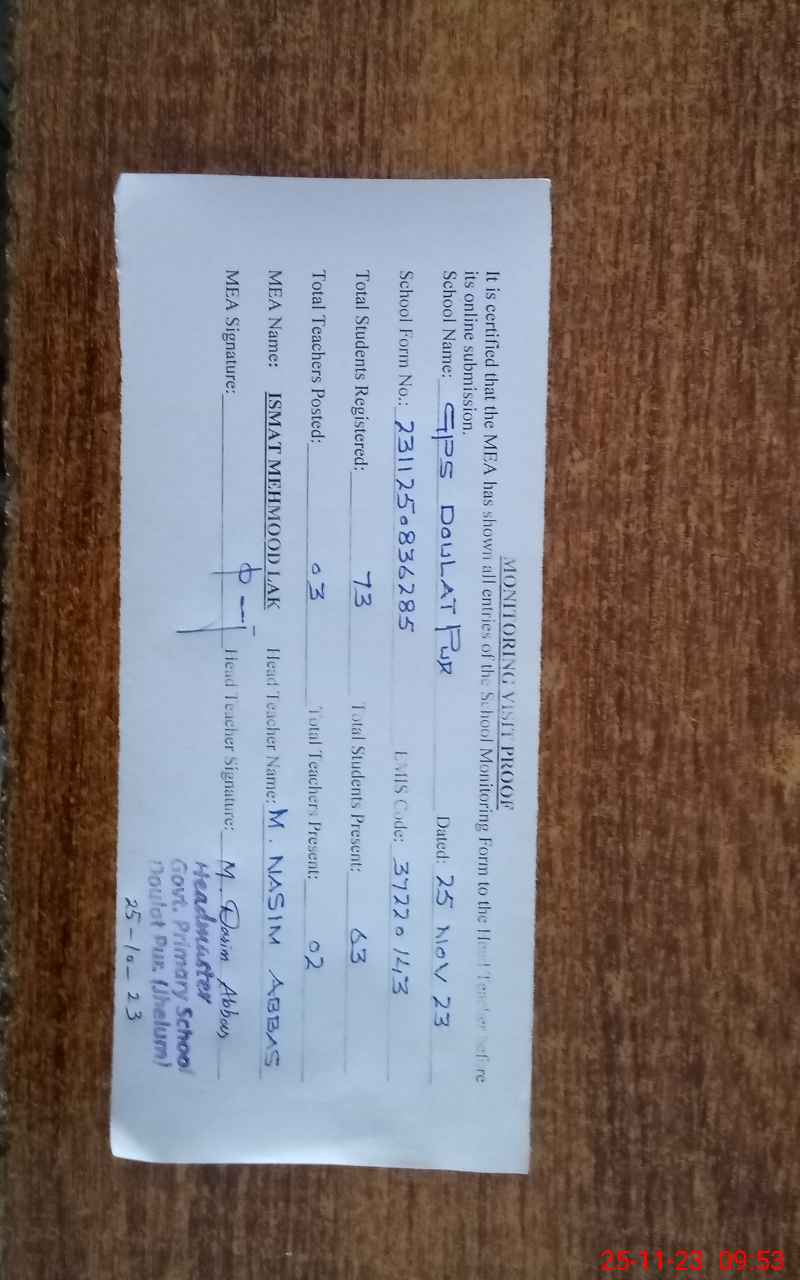 MONITORING VISIT PROOF
It is certified that the MEA has shown all entries of the School Monitoring Form to the Head Teacher before
its online submission.
School Name: GPS DOULAT PUR Dated: 25 NOV 23
School Form No.: 2311250836285 EMIS Code: 37220143
Total Students Registered: 73 Total Students Present: 63
Total Teachers Posted: 03 Total Teachers Present: 02
MEA Name: ISMAT MEHMOOD LAK Head Teacher Name: M. NASIM ABBAS
MEA Signature: Head Teacher Signature: M. Nasim Abbas
Headmaster
Govt. Primary School
Doulat Pur. (Jhelum)
25-10-23
25-11-23 09:53